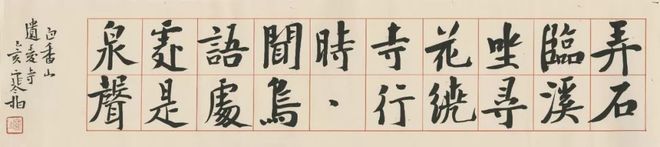 弄石
臨溪
坐尋
花繞
寺行
時丶
聞鳥
語處
處是
泉聲
白香山
遺愛寺
亥